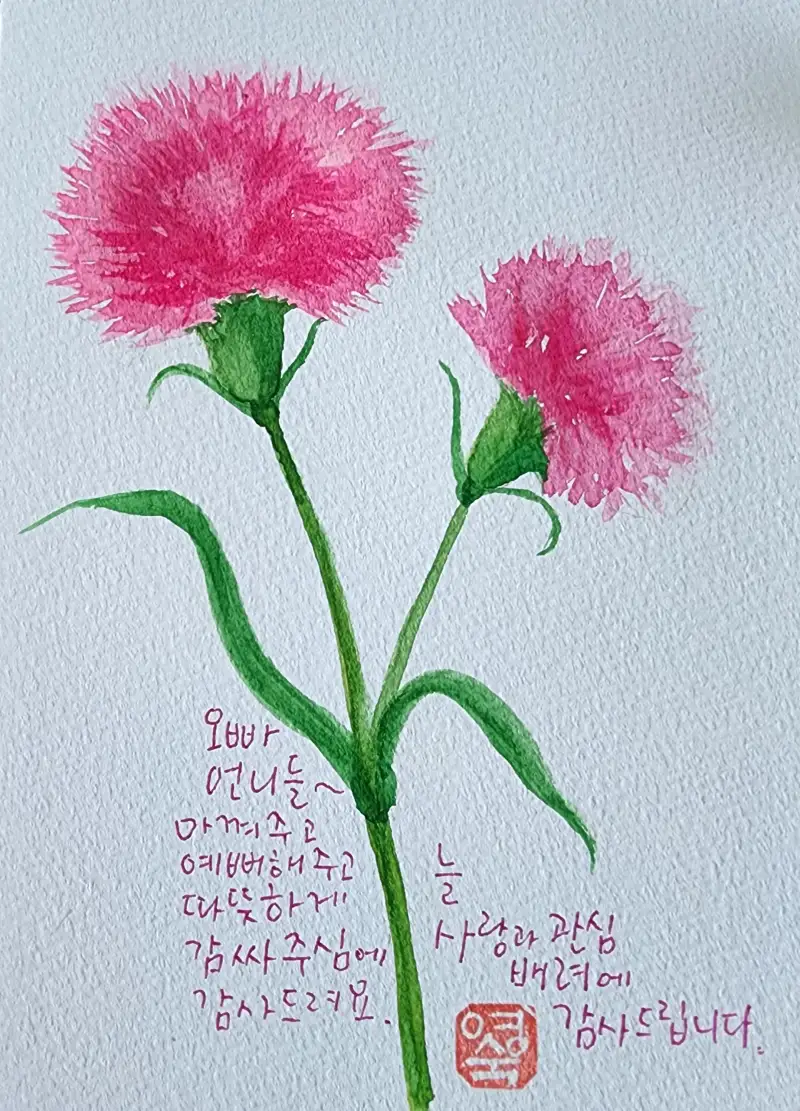 오빠
언니들~
아껴주고
예뻐해주고
따뜻하게
감싸주심에
감사드려요.
늘
사랑과 관심
배려에
감사드립니다.